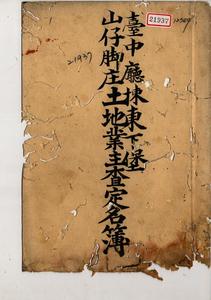 21937
臺中廳揀東下堡
山仔脚庄土地業主查定名簿
21937